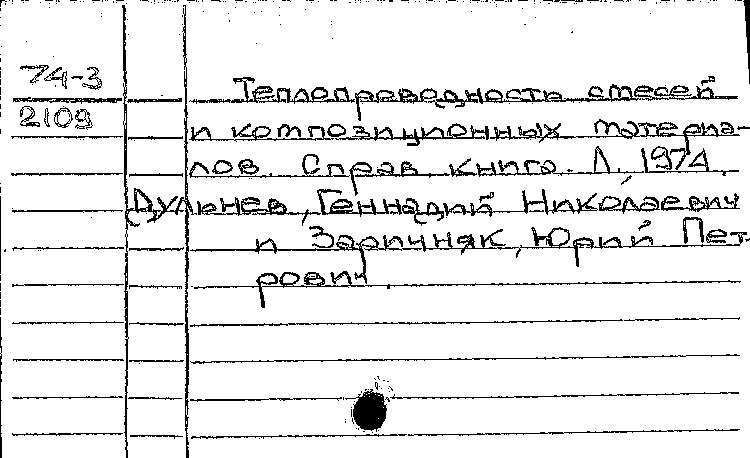 74-3
2109
Теплопроводность смесей
и композиционных материа-
лов. Справ. книга. Л., 1974.
Дульнев, Геннадий Николаевич
и Заричняк, Юрий Пет-
рович.